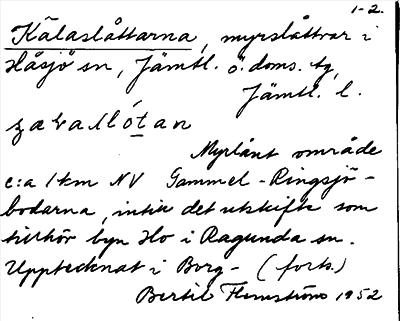 1-2.
Kälaslåttarna, myrslåttrar i
Håsjö sn, Jämtl. ö. doms. tg,
Jämtl. l.
Myrlänt område
c:a 1 km NV Gammel-Ringsjö-
bodarna, intill det utskifte som
tillhör byn Ho i Ragunda sn.
Upptecknat i Borg- (forts.)
Bertil Flemström 1952